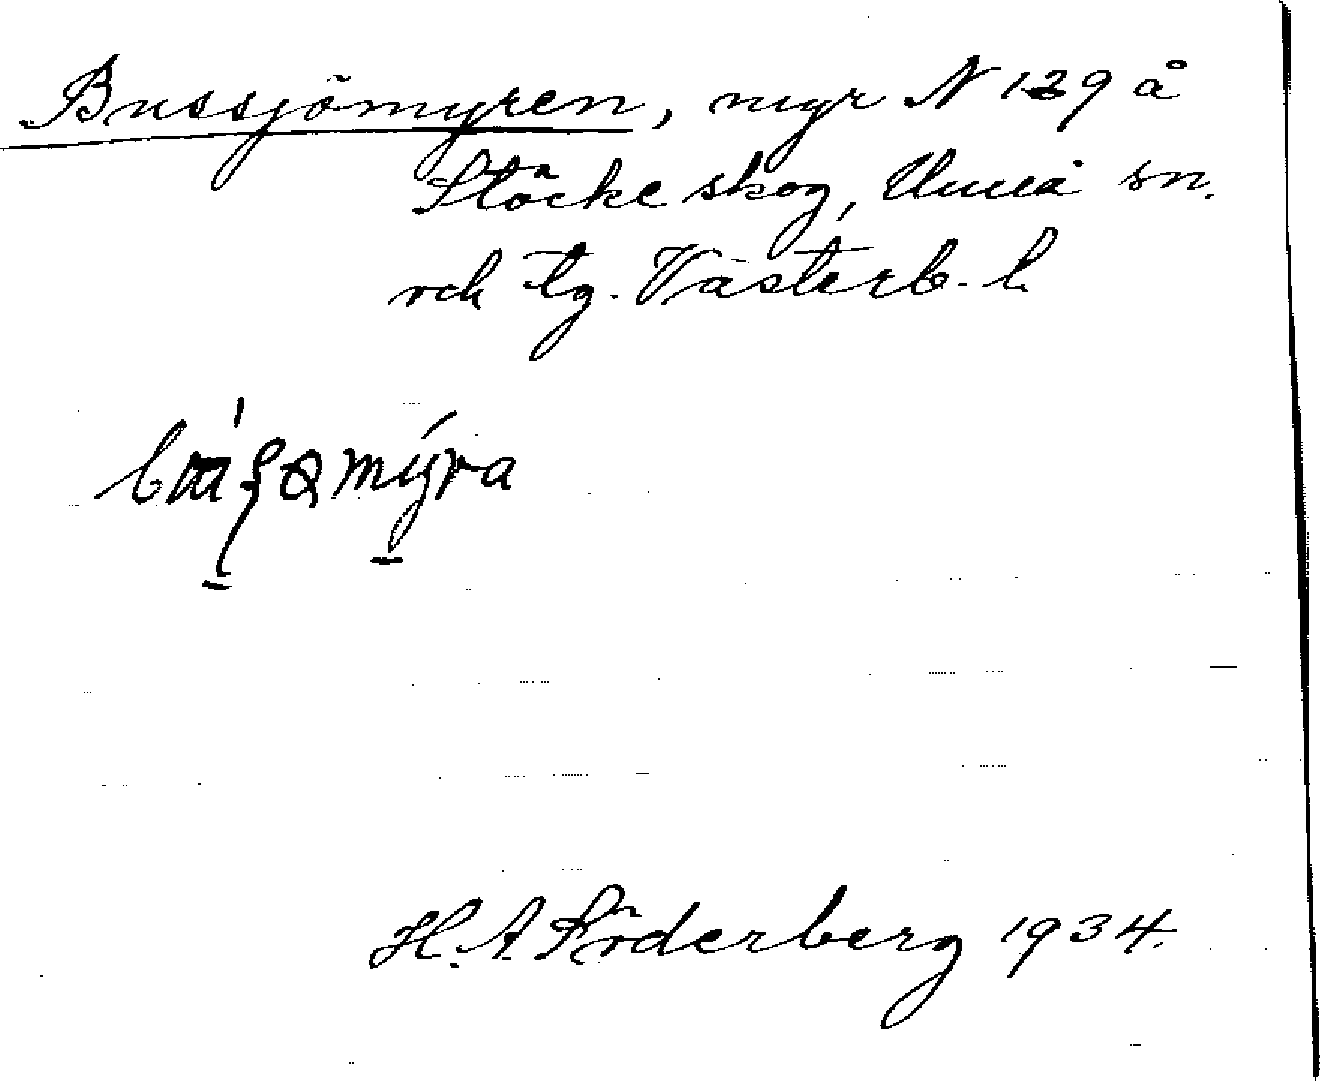 Bussjömyren, myr N 129 å
Stöcke skog, Umeå sn.
och tg. Västerb. l.
mýra
H. A. Söderberg 1934.